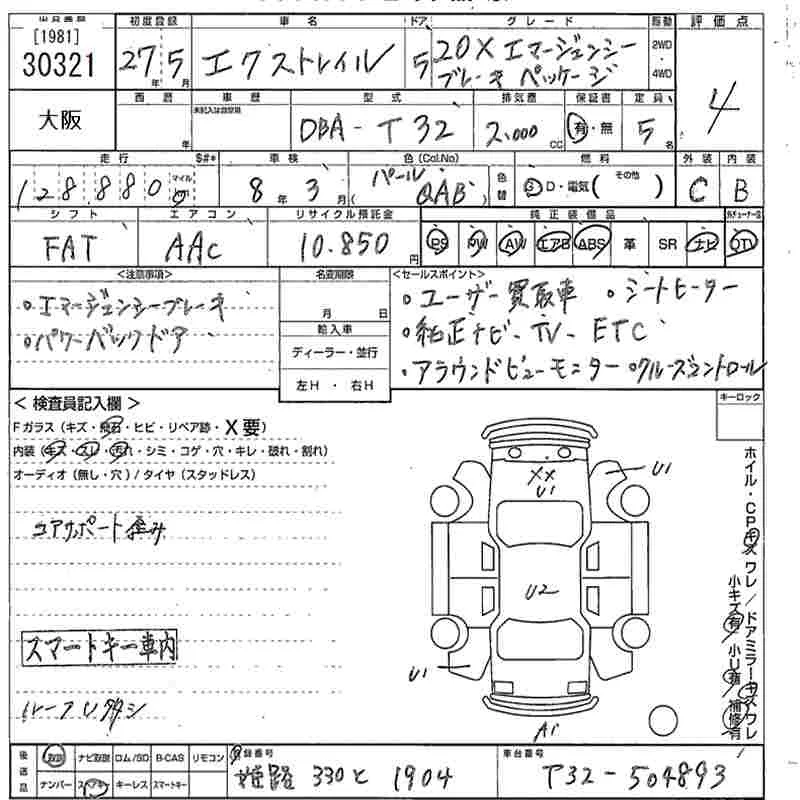 出品番号 初度登録 車名 ドア グレード 駆動 評価点
[1981]
30321 27年 5月 エクストレイル 5 20X エマージェンシー
ブレーキ パッケージ 2WD・4WD 4
大阪 西暦 年 車歴 未記入は自家用 型式 排気量 保証書 定員
DBA-T32 2,000CC 有・無 5名
走行 S#* 車検 色(Col.No) 燃料 外装 内装
128,880 マイル 8年 3月 (パール QAB) 色替 G D・電気( その他 ) C B
シフト エアコン リサイクル預託金 純正装備品
FAT AAC 10.850円 PS PW AW エアB ABS 革 SR ナビ TV
<注意事項> 名変期限 <セールスポイント>
。エマージェンシーブレーキ
。パワーバックドア
月 日
輸入車
ディーラー・並行
左H・右H
。ユーザー買取車 。シートヒーター
。純正ナビ-TV-ETC
。アラウンドビューモニター 。クルーズコントロール
<検査員記入欄> キーロック
Fガラス(キズ・飛石・ヒビ・リペア跡・X要)
内装(キズ・スレ・汚れ・シミ・コゲ・穴・キレ・破れ・割れ)
オーディオ(無し・穴)/タイヤ(スタッドレス)
コアサポート歪み
スマートキー車内
XX
U1
U1
U2
U1
A1
ホイル・CPキズ ワレ/ドアミラーキズワレ
小キズ有/小U有/補修有
後送品 取説 ナビ取説 ロム/SD B-CAS リモコン 登録番号 車台番号
ナンバー スペアキー キーレス スマートキー 姫路 330 と 1904 T32-504893